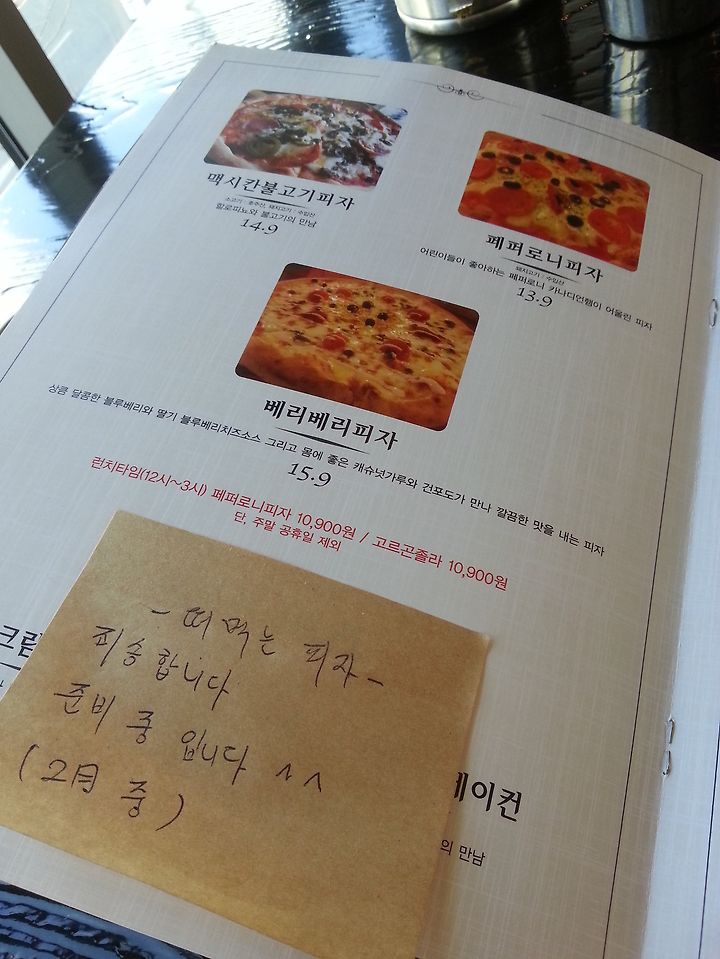 맥시칸불고기피자
소고기 : 호주산, 돼지고기 : 수입산
할로피뇨와 불고기의 만남
14.9
페퍼로니피자
돼지고기 : 수입산
어린이들이 좋아하는 페퍼로니 카나디언햄이 어울린 피자
13.9
베리베리피자
상큼 달콤한 블루베리와 딸기 블루베리치즈소스 그리고 몸에 좋은 캐슈넛가루와 건포도가 만나 깔끔한 맛을 내는 피자
15.9
런치타임(12시~3시) 페퍼로니피자 10,900원 / 고르곤졸라 10,900원
단, 주말 공휴일 제외
- 떠먹는 피자 -
죄송합니다
준비 중 입니다 ^^
(2月 중)
크림
베이컨
의 만남